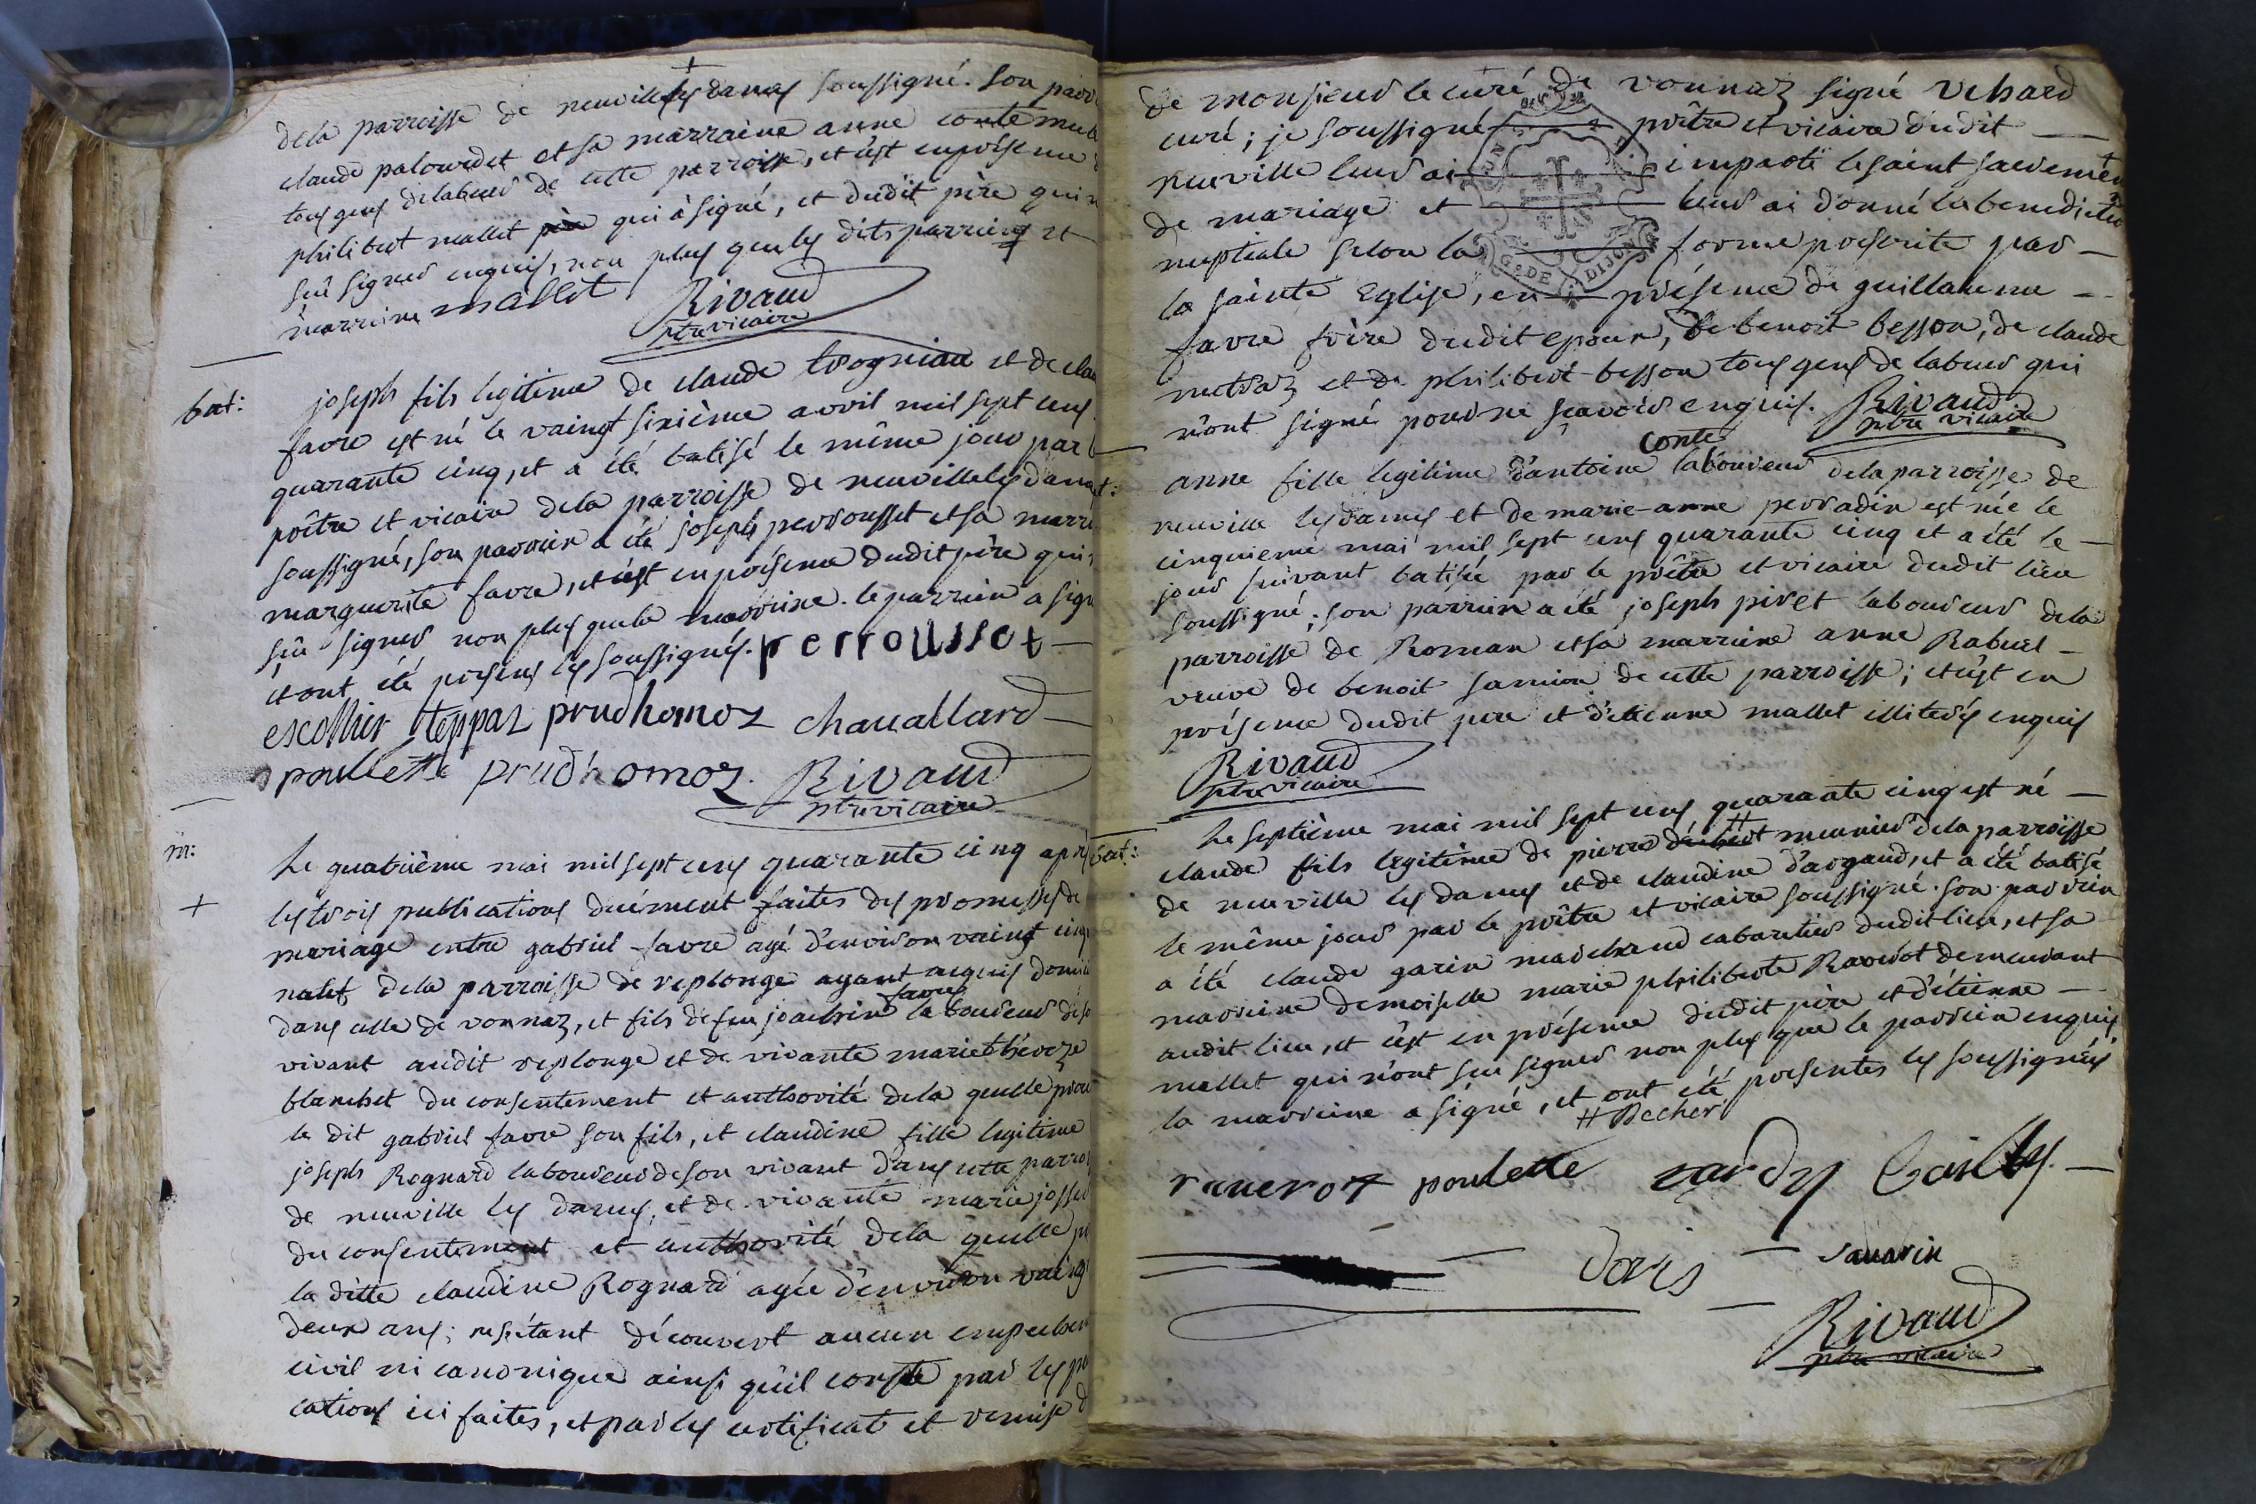 de la parroisse de neuville les dames soussigné. son parr
claude palourdet et sa marraine anne conte
tous gens de labeur de cette parroisse, et c'est en présence
philibert mallet qui à signé, et dudit père qui n
sçu signer enquis, non plus que les dits parrein et
marreine mallet Rivaud
ptre vicaire
bat: joseph fils legitime de claude trogniau et de clau
favre est né le vaingt sixième avril mil sept cens
quarante cinq, et a été batisé le même jour par l
prêtre et vicaire de la parroisse de neuville les dam
soussigné, son parrein a été joseph perrousset et sa marr
marguerite favre, et c'est en présence dudit père qui n
sçu signer non plus que la marreine. le parrein a sign
et ont été présens les soussignés. perrousset
escoffier teppaz prudhomoz chavallard
poullette prudhomoz. Rivaud
ptre vicaire
m: Le quatrième mai mil sept cens quarante cinq aprés
+ les trois publications duément faites des promesses de
mariage entre gabriel favre agé d'environ vaingt cinq
natif de la parroisse de replonge ayant acquis domic
favre
dans celle de vonnaz, et fils de feu joachin laboureur de s
vivant audit replonge et de vivante marie thereze
blanchet du consentement et authorité de la quelle
le dit gabriel favre son fils, et claudine fille legitime
joseph Rognard laboureur de son vivant dans cette parroi
de neuville les dames, et de vivante marie
du consentement et authorité de la quelle
la ditte claudine Rognard agée d'environ vaingt
deux ans; ne s'étant découvert aucun empechem
civil ni canonique ainsi qu'il conste par les pu
cations ici faites, et par les certificat et remise d
de monsieur le curé de vonnaz signé Vchard
curé; je soussigné prêtre et vicaire dudit
neuville leur ai imparti le saint sacrement
de mariage et leur ai donné la benediction
nuptiale selon la forme préscrite par
G. DE DIJON
la sainte Eglise, en présence de guillaume
favre frère dudit epoux, de benoit besson, de claude
metraz et de philibert besson tous gens de labeur qui
n'ont signé pour ne sçavoir enquis. Rivaud
ptre vicaire
conte
anne fille legitime d'antoine laboureur de la parroisse de
neuville les dames et de marie-anne perradin est née le
cinquieme mai mil sept cens quarante cinq et a été le
jour suivant batisée par le prêtre et vicaire dudit lieu
soussigné; son parrein a été joseph piret laboureur de la
parroisse de Roman et sa marreine anne Rabuel
veuve de benoit de cette parroisse; et c'est en
présence dudit pere et d'étienne mallet illiterés enquis
Rivaud
ptre vicaire
bat: Le septième mai mil sept cens quarante cinq est né
claude fils legitime de pierre # meunier de la parroisse
de neuville les dames et de claudine d'argaud, et a été batisé
le même jour par le prêtre et vicaire soussigné. son parrein
a été claude garin marchand cabaretier dudit lieu, et sa
marreine demoiselle marie philiberte Raverot demeurant
audit lieu, et c'est en présence dudit père et d'étienne
mallet qui n'ont sçu signer non plus que le parrein enquis,
la marreine a signé, et ont été présentes les soussignés.
# Becher
raverot poulette Bailly.
savarin
Rivaud
ptre vicaire